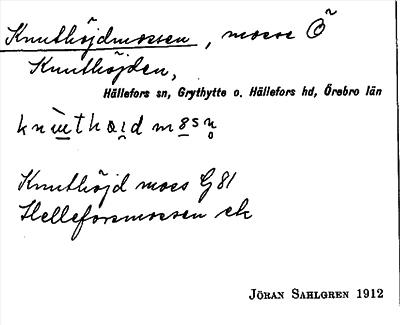 Knuthöjdmossen, mosse Ö
Knuthöjden,
Hällefors sn, Grythytte o. Hällefors hd, Örebro län
Knuthöjd moss G 81
Helleforsmossen ek
JÖRAN SAHLGREN 1912